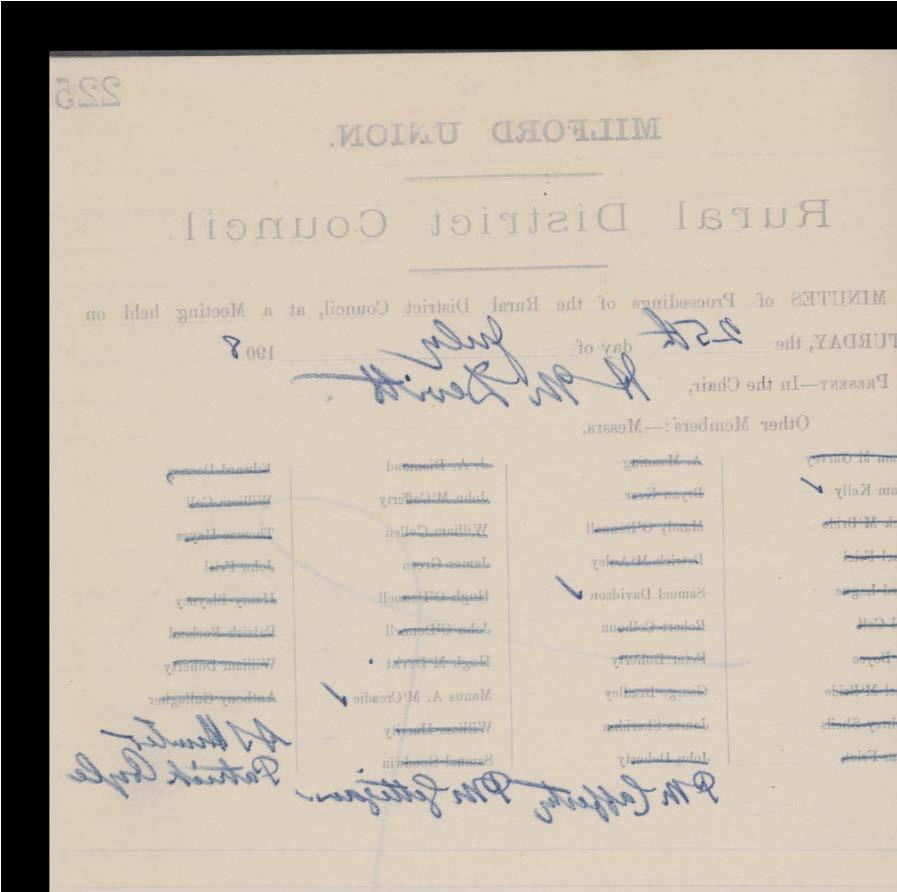 225
MILFORD UNION.
Rural District Council.
MINUTES of Proceedings of the Rural District Council, at a Meeting held on
TURDAY, the 25th day of July 1908
PRESENT—In the Chair, H McDevitt
Other Members:—Messrs.
Garvey
am Kelly
k McBride
el Friel
Logue
Coll
Boyce
el McBride
Sheils
Friel
A. Manning
Bryan Kerr
Mandy O'Donnell
Patrick McAuley
Samuel Davidson
Robert Colhoun
Peter Doherty
George Bradley
James Sheridan
John Doherty
J. A. Diamond
John McCafferty
William Cullen
James Green
Hugh O'Donnell
John O'Donnell
Hugh McDevitt
Manus A. McCreadie
William Harrty
Samuel Goodwin
Edward Deeney
William Coll
Thomas Hayes
John Friel
Harry Blayney
Patrick Rowland
William Doherty
Anthony Gallagher
P McCafferty P McGettigan Patrick Coyle
AJ Hunter